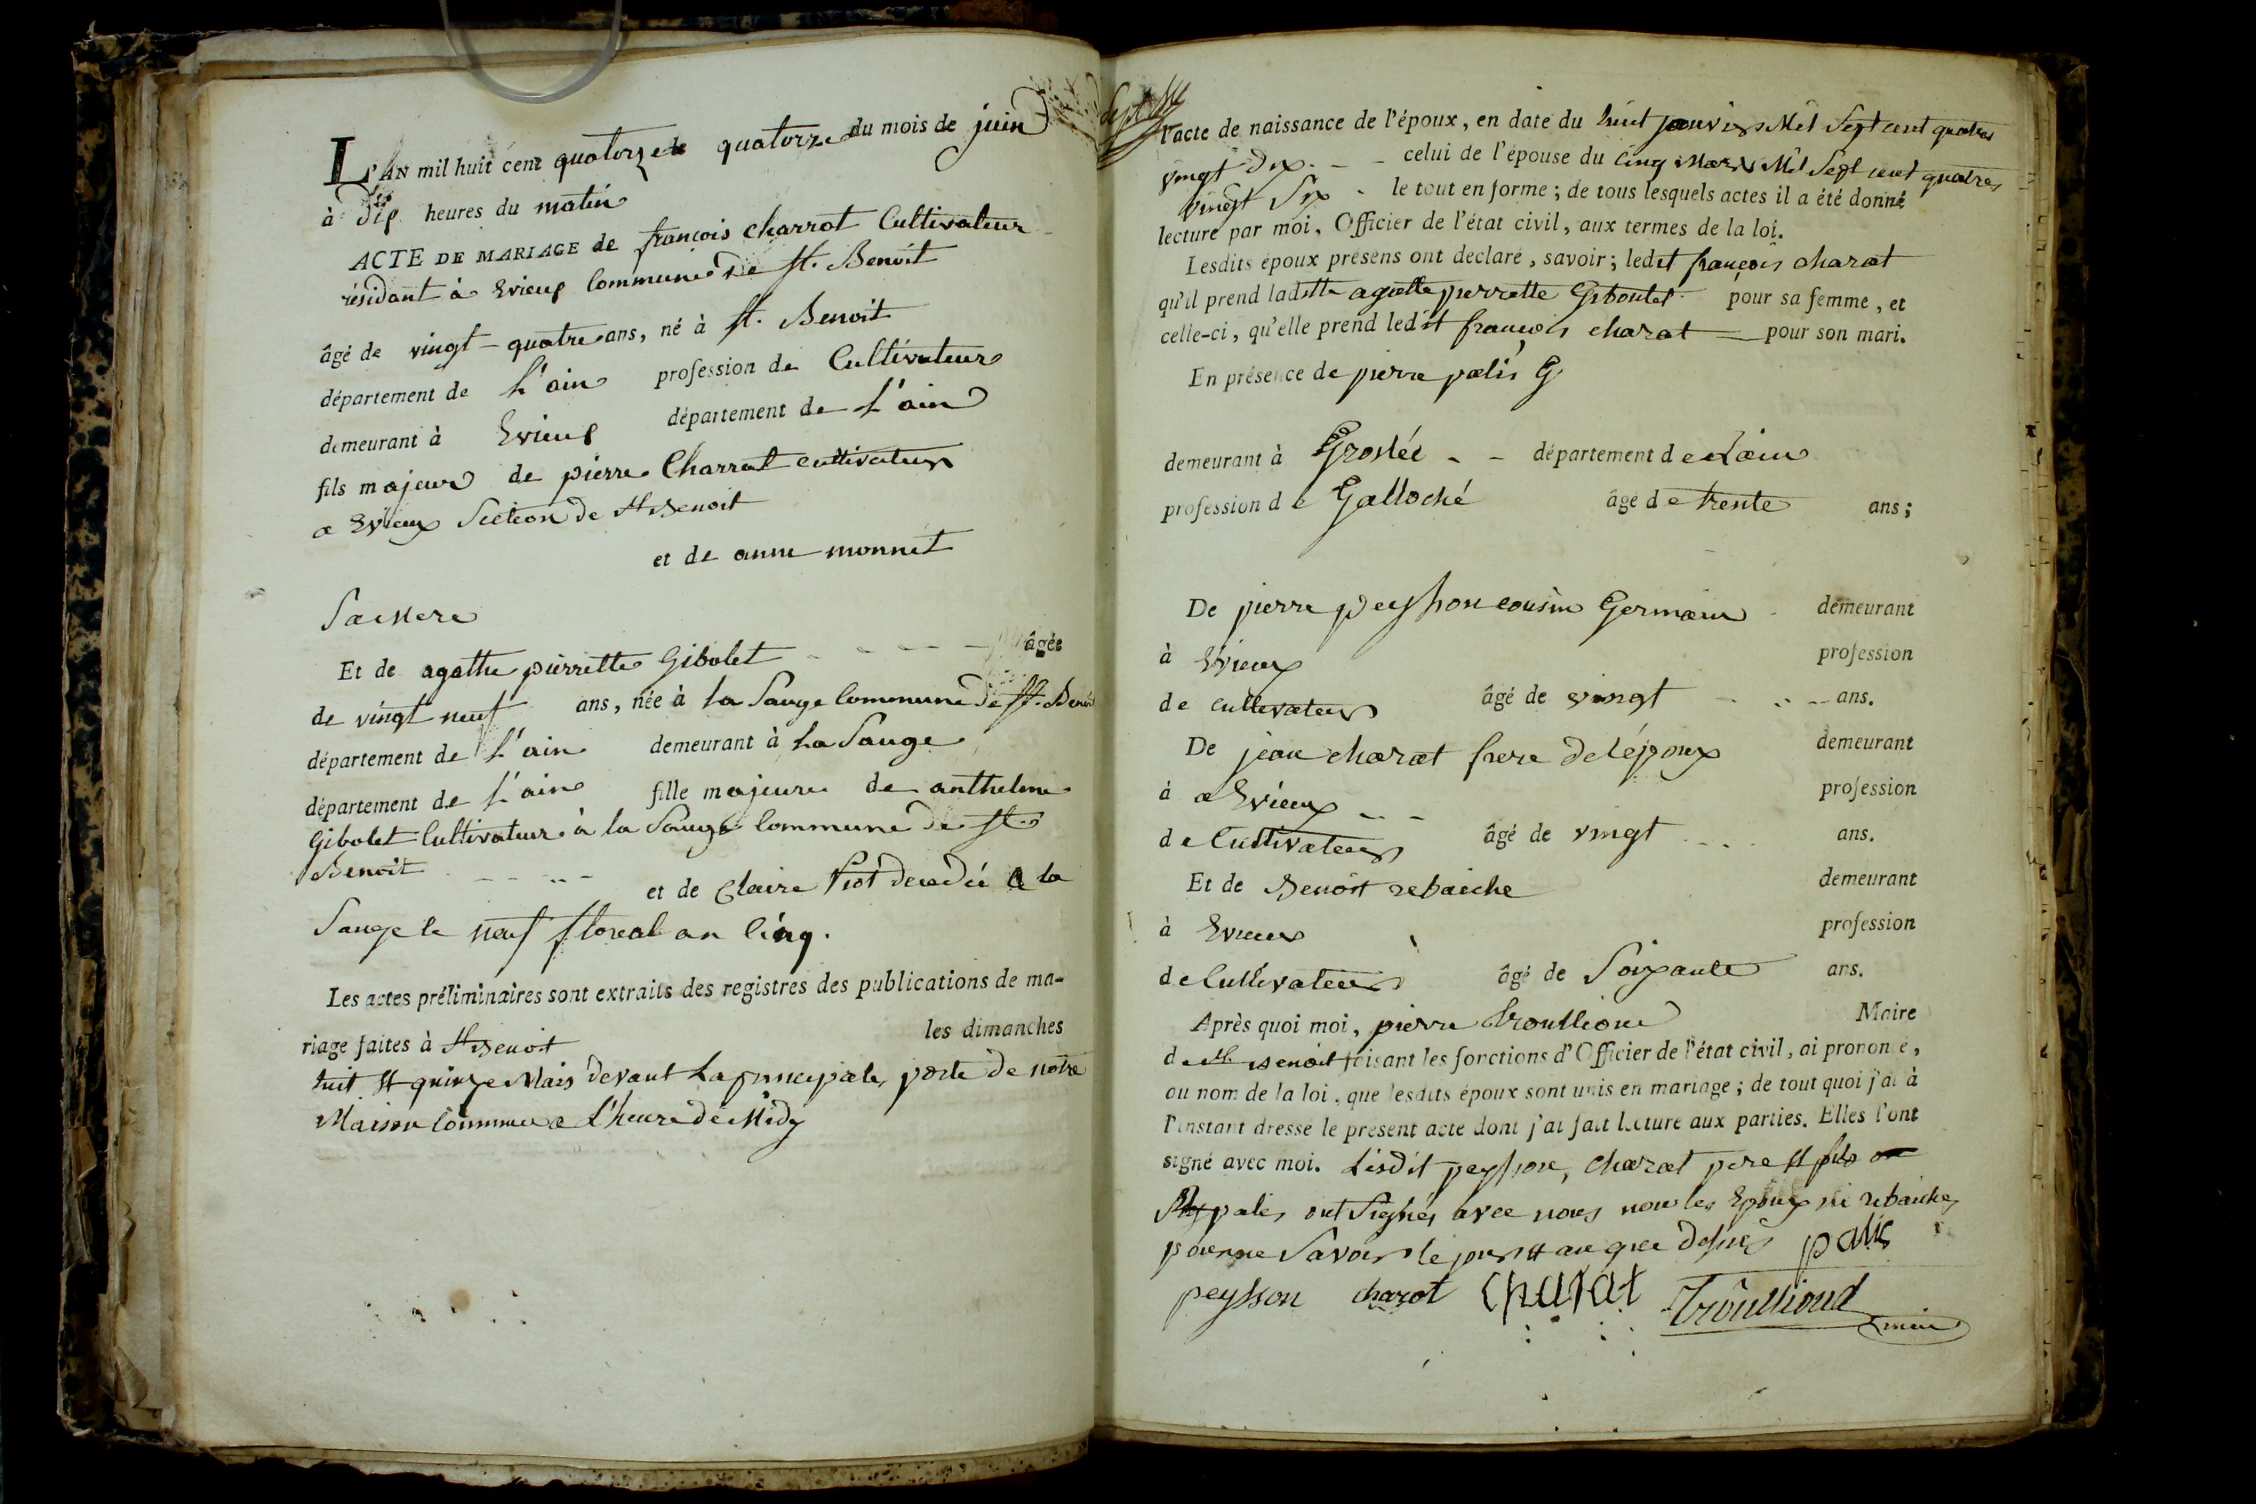 L'AN mil huit cent quatorze le quatorze du mois de juin
à dix heures du matin
ACTE DE MARIAGE de françois Charrat Cultivateur
résidant à Evieux Commune de St. Benoit
âgé de vingt-quatre ans, né à St. Benoit
département de L'ain profession de Cultivateur
demeurant à Evieux département de L'ain
fils majeur de pierre Charrat cultivateur
a Evieux Section de St Benoit
et de anne monnet
Sa Mere
Et de agathe pierrette Gibolet âgée
de vingt neuf ans, née à la Sauge Commune de St. Benoit
département de L'ain demeurant à La Sauge
département de L'ain fille majeure de anthelme
Gibolet Cultivateur à la Sauge Commune de St.
Benoit et de Claire decedée a la
Sauge le neuf floreal an Cinq.
Les actes préliminaires sont extraits des registres des publications de ma-
riage faites à St Benoit les dimanches
huit et quinze Mais devant La principale porte de notre
Maison Commune a L'heure de Midy
l'acte de naissance de l'époux, en date du huit janvier Mil Sept cent quatre
vingt dix celui de l'épouse du Cinq Mars Mil Sept cent quatre
vingt Six le tout en forme; de tous lesquels actes il a été donné
lecture par moi, Officier de l'état civil, aux termes de la loi.
Lesdits époux présens ont déclaré, savoir; ledit françois charat
qu'il prend laditte agatte pierrette Giboulet pour sa femme, et
celle-ci, qu'elle prend ledit françois charat pour son mari.
En présence de pierre palis G
demeurant à Groslée département de Lain
profession de Galloché âgé de trente ans;
De pierre peysson cousin Germain demeurant
à Evieux profession
de cultivateur âgé de vingt ans.
De jean charat frere de lépoux demeurant
à a Evieux profession
de Cultivateur âgé de vingt ans.
Et de Benoit rebaiche demeurant
à Evieux profession
de Cultivateur âgé de Soixante ans.
Après quoi moi, pierre Maire
de St Benoit faisant les fonctions d'Officier de l'état civil, ai prononcé,
au nom de la loi, que lesdits époux sont unis en mariage; de tout quoi j'ai à
l'instant dressé le présent acte dont j'ai fait lecture aux parties. Elles l'ont
signé avec moi. Lesdit peysson, charat pere et fils
palis ont Signés avec nous non les Epoux ni rebaiche
pour ne Savoir le jour et an que dessus palis
peysson charat Charat Troullioud
maire